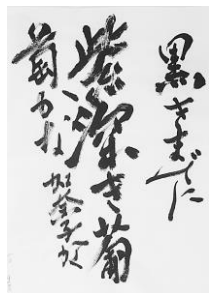 黒きまでに
紫深き葡
萄かな